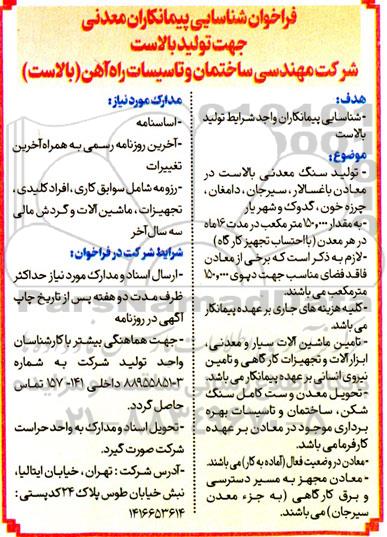 فراخوان شناسایی پیمانکاران معدنی
جهت تولید بالاست
شرکت مهندسی ساختمان و تاسیسات راه آهن (بالاست)
هدف:
-شناسایی پیمانکاران واجد شرایط تولید
بالاست
موضوع:
- تولید سنگ معدنی بالاست در
معادن باغسالار، سیرجان، دامغان،
چرزه خون، گدوک و شهریار
-به مقدار ۱۵۰,۰۰۰ متر مکعب در مدت ۱۶ ماه
در هر معدن (با احتساب تجهیز کارگاه)
-لازم به ذکر است که برخی از معادن
فاقد فضای مناسب جهت دپوی ۱۵۰,۰۰۰
متر مکعب می باشند.
-کلیه هزینه های جاری بر عهده پیمانکار
می باشد.
-تامین ماشین آلات سیار و معدنی،
ابزارآلات و تجهیزات کارگاهی و تامین
نیروی انسانی بر عهده پیمانکار می باشد.
-تحویل معدن و ست کامل سنگ
شکن، ساختمان و تاسیسات بهره
برداری موجود در معادن بر عهده
کارفرما می باشد.
-معادن در وضعیت فعال (آماده به کار) می باشند.
- معادن مجهز به مسیر دسترسی
و برق کارگاهی (به جزء معدن
سیرجان) می باشند.
مدارک مورد نیاز:
-اساسنامه
-آخرین روزنامه رسمی به همراه آخرین
تغییرات
-رزومه شامل سوابق کاری، افراد کلیدی،
تجهیزات، ماشین آلات و گردش مالی
سه سال آخر
شرایط شرکت در فراخوان:
-ارسال اسناد و مدارک مورد نیاز حداکثر
ظرف مدت دو هفته پس از تاریخ چاپ
آگهی در روزنامه
-جهت هماهنگی بیشتر با کارشناسان
واحد تولید شرکت به شماره
۳-۸۸۹۵۵۸۵۱ داخلی ۱۴۱- ۱۵۷ تماس
حاصل گردد.
-تحویل اسناد و مدارک به واحد حراست
شرکت صورت گیرد.
-آدرس شرکت: تهران، خیابان ایتالیا،
نبش خیابان طوس پلاک ۲۴ کدپستی:
۱۴۱۶۶۵۳۶۱۴